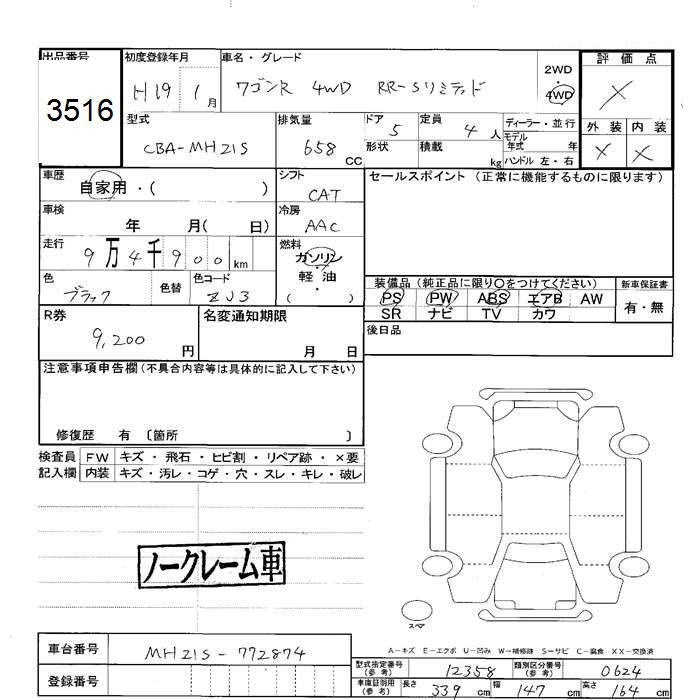 出品番号 初度登録年月 車名・グレード 評価点
3516 H19 1月 ワゴンR 4WD RR-Sリミテッド 2WD 4WD ×
型式 排気量 ドア 定員 ディーラー・並行 外装 内装
CBA-MH21S 658 CC 5 4 人 モデル年式 年 × ×
形状 積載 kg ハンドル 左・右
車歴 シフト セールスポイント (正常に機能するものに限ります)
自家用・( ) CAT
車検 冷房
年 月( 日) AAC
走行 燃料
9万4千900km ガソリン・軽油
色 色替 色コード ( )
ブラック ZJ3
装備品 (純正品に限り○をつけてください) 新車保証書
PS PW ABS エアB AW 有・無
SR ナビ TV カワ
R券 名変通知期限 後日品
9,200円 月 日
注意事項申告欄 (不具合内容等は具体的に記入して下さい)
修復歴 有 〔箇所 〕
検査員 FW キズ・飛石・ヒビ割・リペア跡・×要
記入欄 内装 キズ・汚レ・コゲ・穴・スレ・キレ・破レ
ノークレーム車
スペア
A-キズ E-エクボ U-凹み W-補修跡 S-サビ C-腐食 XX-交換済
車台番号 MH21S-772874
型式指定番号(参考) 12358 類別区分番号(参考) 0624
登録番号
車庫証明用(参考) 長さ 339 cm 幅 147 cm 高さ 164 cm